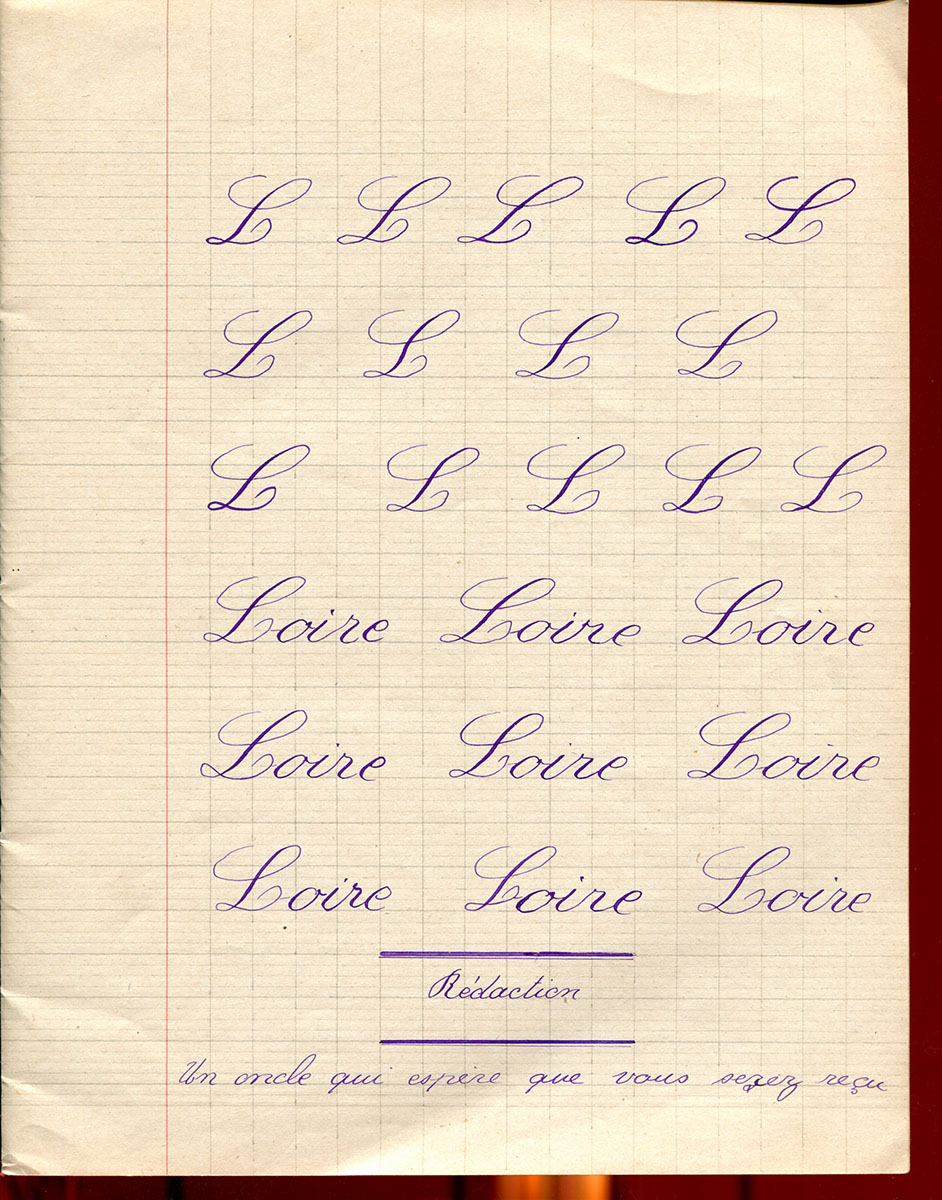 L L L L L
L L L L
L L L L L
Loire Loire Loire
Loire Loire Loire
Loire Loire Loire
Rédaction
Un oncle qui espère que vous serez reçu